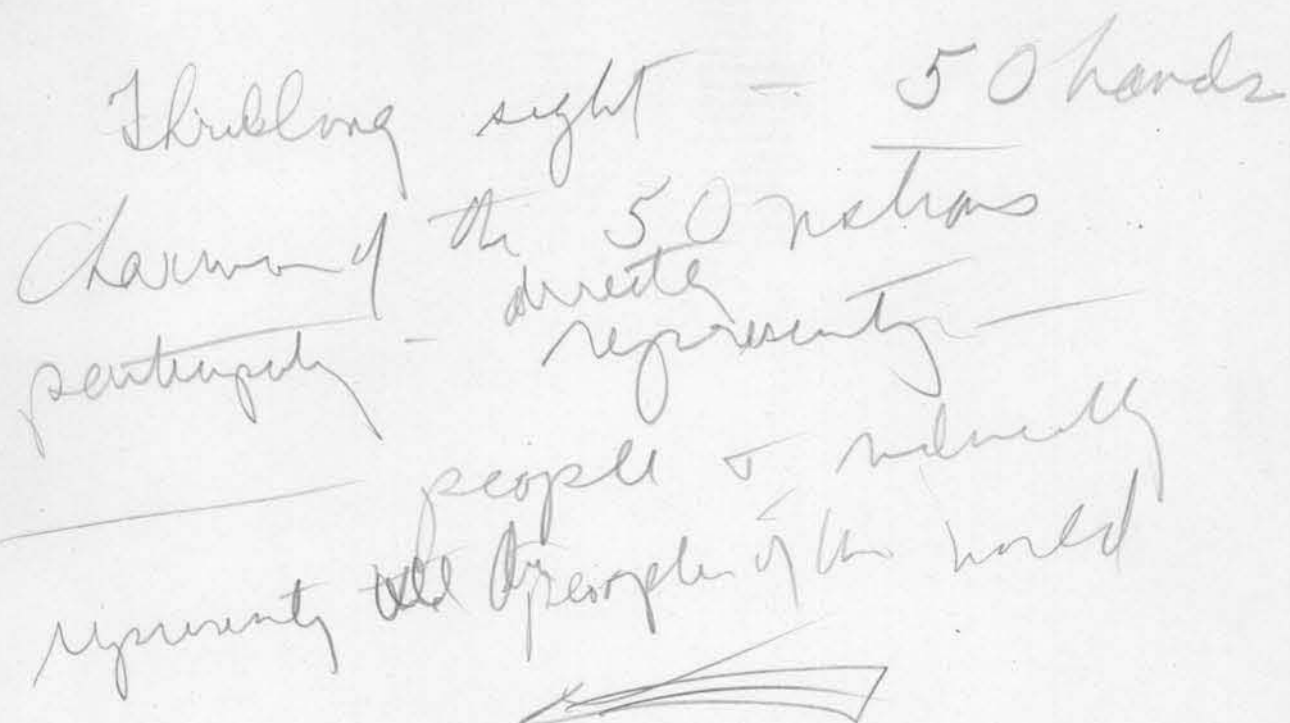 Thrilling sight — 50 hands
Chairman of the 50 nations
participating — directly representing —
— people & indirectly
representing all the peoples of the world